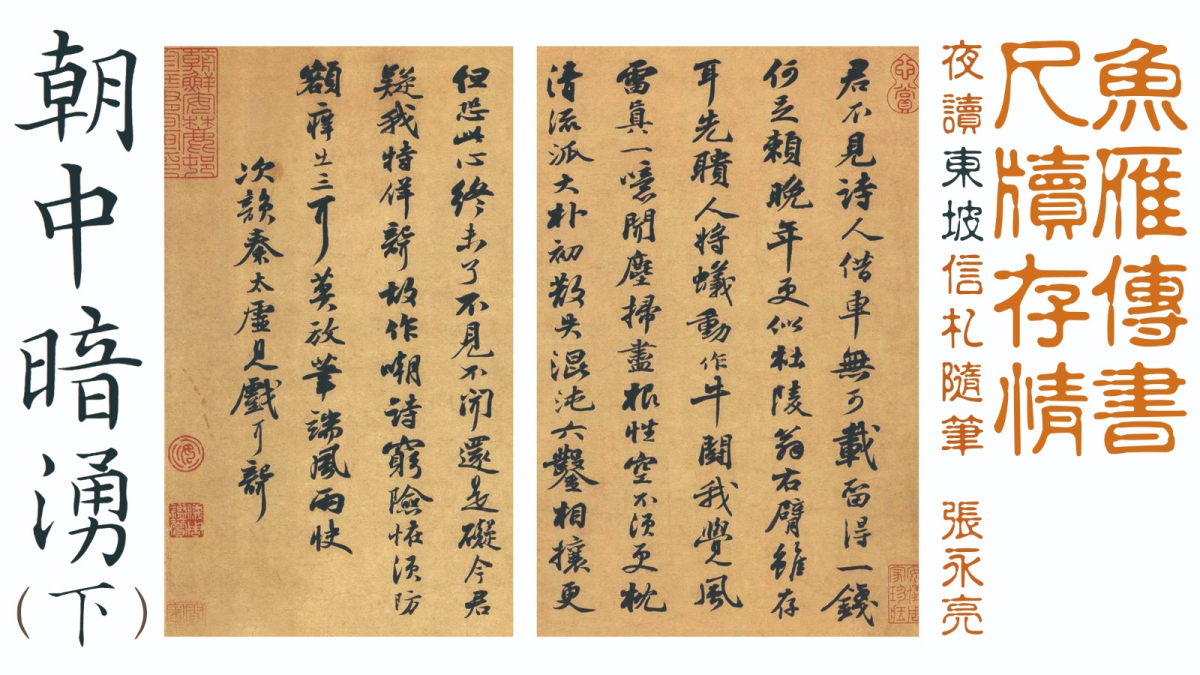 魚雁傳書
尺牘存情
夜讀東坡信札隨筆 張永亮
君不見詩人借車無可載留得一錢
何足賴晚年更似杜陵翁右臂雖存
耳先聵人將蟻動作牛鬪我覺風
雷眞一噫聞塵掃盡根性空不須更枕
清流派大朴初散失混沌六鑿相攘更
但恐此心終未了不見不聞還是礙今君
疑我特佯聾故作嘲詩窮險怪須防
額痒出三耳莫放筆端風雨快
次韻秦太虛見戲耳聾
朝中暗湧（下）